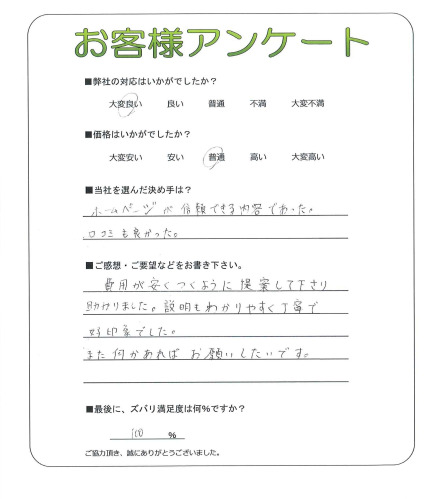 お客様アンケート
■弊社の対応はいかがでしたか?
大変良い 良い 普通 不満 大変不満
■価格はいかがでしたか?
大変安い 安い 普通 高い 大変高い
■当社を選んだ決め手は?
ホームページが信頼できる内容であった。
口コミも良かった。
■ご感想・ご要望などをお書き下さい。
費用が安くつくように提案して下さり
助かりました。説明もわかりやすく丁寧で
好印象でした。
また何かあればお願いしたいです。
■最後に、ズバリ満足度は何%ですか?
100 %
ご協力頂き、誠にありがとうございました。